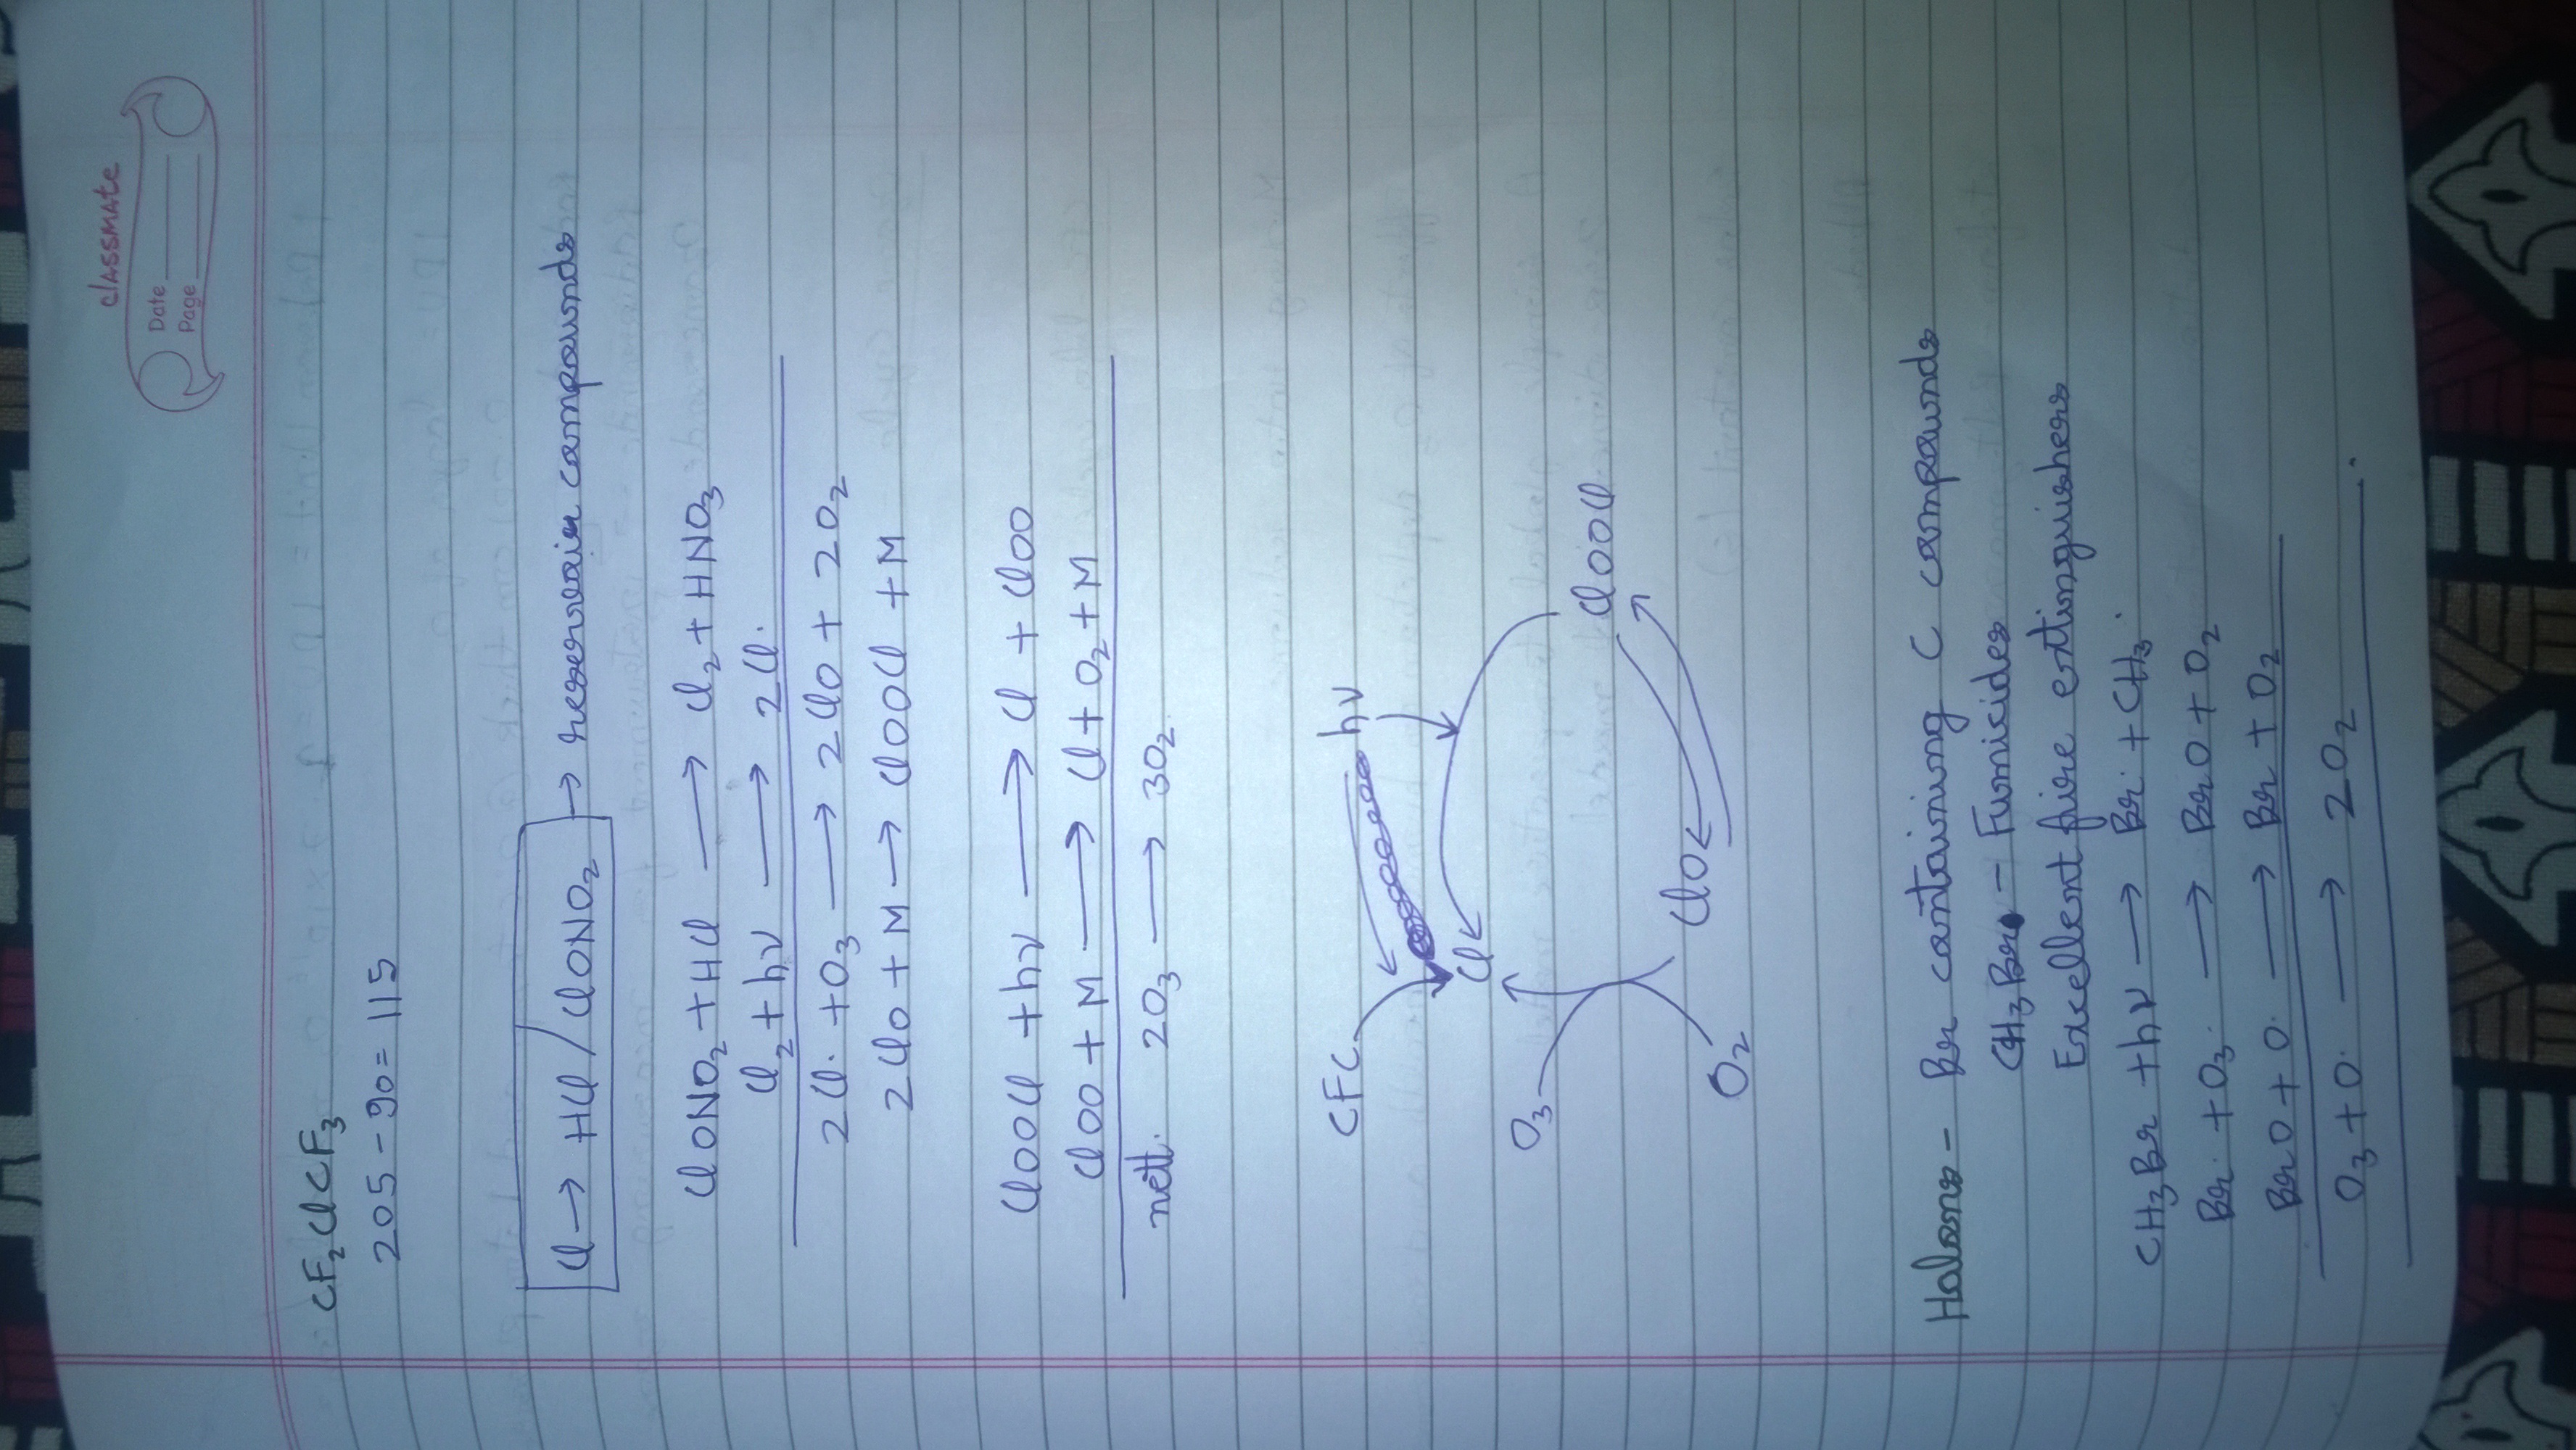 classmate
Date
Page
CF₂ClCF₃
205 - 90 = 115
Cl → HCl / ClONO₂ → reservoir compounds
ClONO₂ + HCl → Cl₂ + HNO₃
Cl₂ + hν → 2Cl·
2Cl· + O₃ → 2ClO + 2O₂
2ClO + M → ClOOCl + M
ClOOCl + hν → Cl + ClOO
ClOO + M → Cl + O₂ + M
nett. 2O₃ → 3O₂
CFC hν
Cl
O₃ ClOOCl
ClO
O₂
Halons - Br containing C compounds
CH₃Br - Fumicides
Excellent fire extinguishers
CH₃Br + hν → Br· + CH₃·
Br· + O₃ → BrO + O₂
BrO + O· → Br + O₂
O₃ + O· → 2O₂